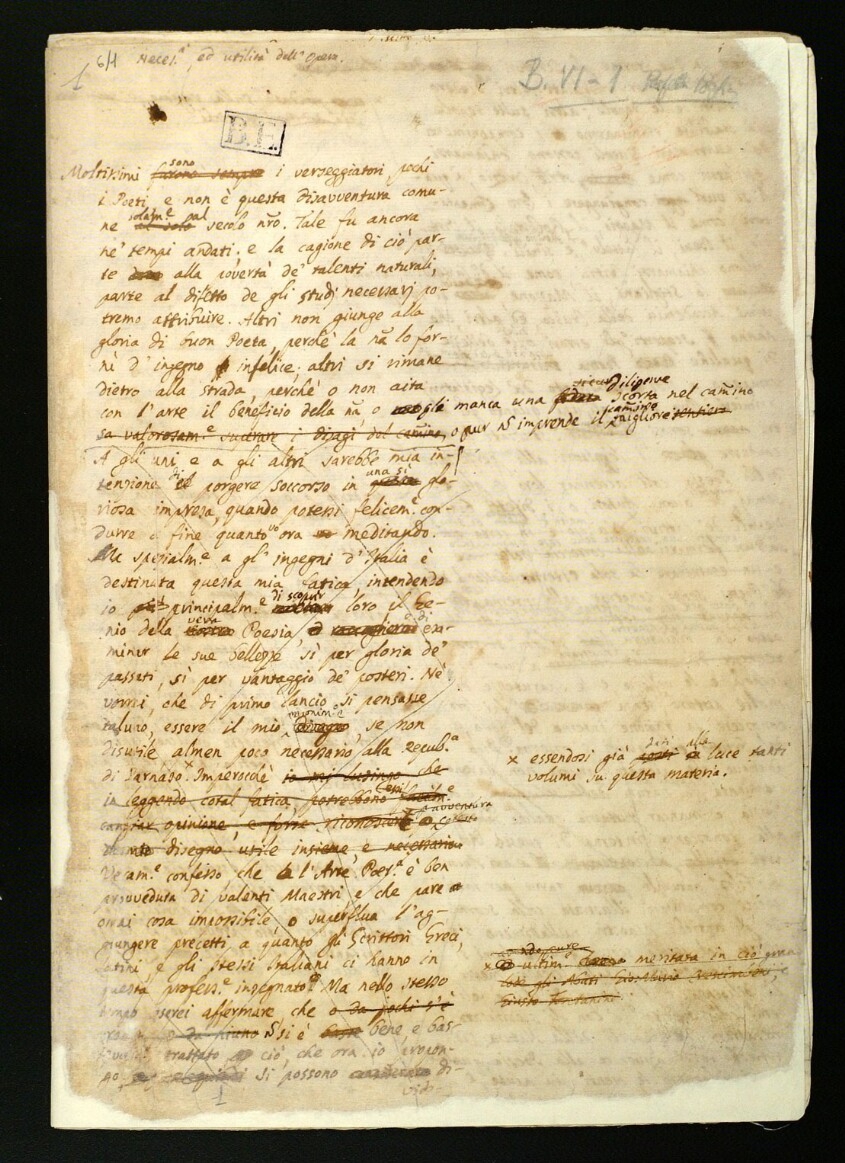 1
6/1 Neces.ª ed utilità dell' Opera.
B. VI - 1
B.E.
Moltissimi sono i verseggiatori pochi
i Poeti, e non è questa disavventura comu-
ne solam.e pel secolo nro. Tale fu ancora
ne' tempi andati; e la cagione di ciò par-
te alla povertà de' talenti naturali,
parte al difetto de gli studj necessarj po-
tremo attribuire. Altri non giunge alla
gloria di buon Poeta, perchè la na lo for-
nì d' ingegno infelice; altri si rimane
dietro alla strada, perchè o non aita
con l'arte il beneficio della na, o gli manca una scorta nel camino
sa valorosam.e superare i disagi del camino, o pur non imprende il migliore sentiero
A gli uni, e a gli altri sarebbe mia in-
tensione di porgere soccorso in una sì glo-
riosa impresa, quando potessi felicem.e con-
durre a fine quanto vo ora meditando.
Ma spezialm.e a gl' ingegni d' Italia è
destinata questa mia fatica, intendendo
io principalm.e di scoprir loro il Ge-
nio della vera Poesia, e di esa-
minar le sue bellezze, sì per gloria de'
passati, sì per vantaggio de' posteri. Nè
vorrei, che di primo lancio si pensasse
taluno, essere il mio, se non
disutile almen poco necessario alla Repub.ª
di Parnaso.x Imperochè io mi lusingo che
in leggendo cotal fatica, potrebbono
cangiar opinione, e forse
disegno utile insieme e necessario
Veram.e confesso che l'Arte Poet.ª è ben
provveduta di valenti Maestri e che pare
omai cosa impossibile, o superflua l'ag-
giungere precetti, a quanto gli Scrittori Greci,
latini, e gli stessi Italiani ci hanno in
questa profess.e insegnato. Ma nello stesso
tempo oserei affermare, che o da pochi s'è
o da niuno si è bene e bas-
trattato ciò, che ora io propon-
go si possono di-
vid-
x essendosi già dati alla luce tanti
volumi su questa materia.
x ultim.e meritata in ciò gran
lode gli Abati Gio. Mario Crescimbeni, e
Giusto Fontanini.
1